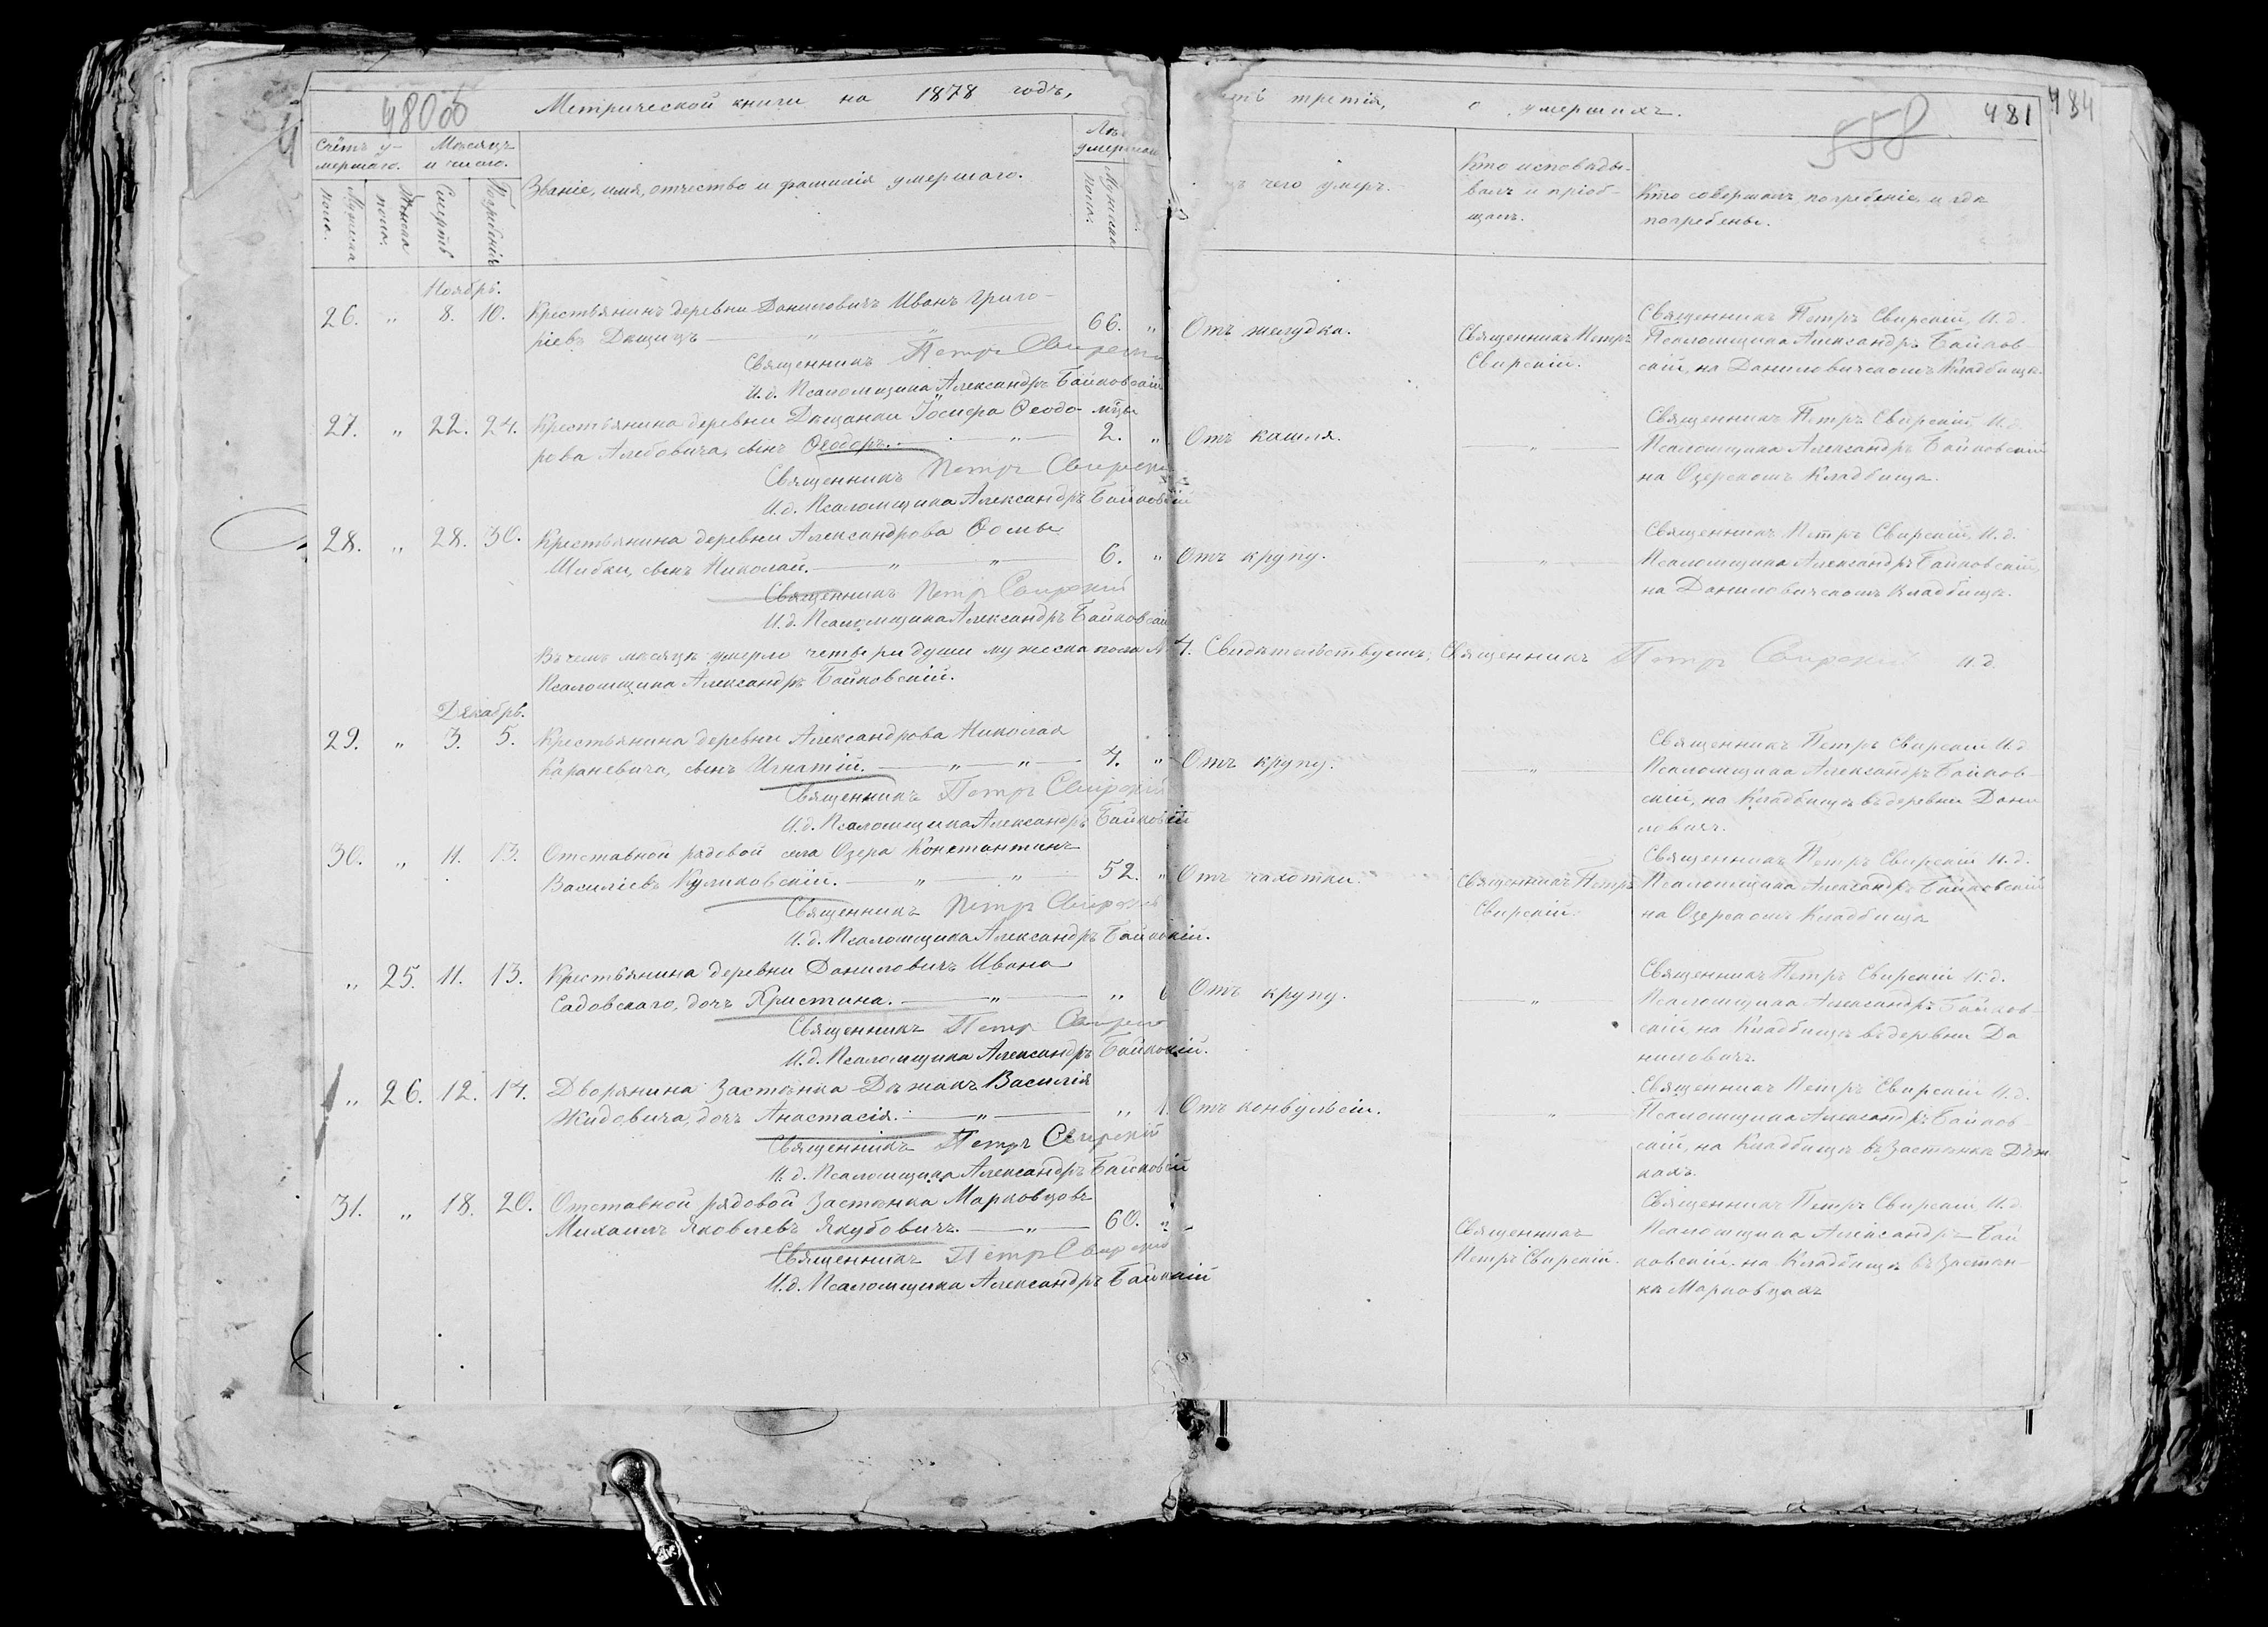 480об
Метрической книги на 1878 годъ,
третія, о умершихъ.
558
481
484
Счетъ у-
мершаго.
Мѣсяцъ
и число.
Званіе, имя, отчество и фамилія умершаго.
Мужеска
пола.
Женска
пола.
Смерть
Погребенія
Мужеска
пола.
чего умеръ.
Кто исповѣды-
валъ и пріоб-
щалъ.
Кто совершалъ погребеніе и гдѣ
погребены.
Ноябрь.
26. „ 8. 10. Крестьянинъ деревни Даниловичъ Иванъ Григо-
ріевъ Дащицъ 66. „ Отъ желудка.
Священникъ Петръ Свирскій
И.д. Псаломщика Александръ Байковскій
Священникъ Петръ
Свирскій.
Священникъ Петръ Свирскій, И.д.
Псаломщика Александръ Байков-
скій, на Даниловичскомъ Кладбищѣ.
27. „ 22. 24. Крестьянина деревни Дащанки Іосифа Ѳеодо-
рова Алебовича, сынъ Ѳеодоръ. мцы 2. „ Отъ кашля.
Священникъ Петръ Свирскій
И.д. Псаломщика Александръ Байковскій
Священникъ Петръ Свирскій, И.д.
Псаломщика Александръ Байковскій
на Озерскомъ Кладбищѣ.
28. „ 28. 30. Крестьянина деревни Александрова Ѳомы
Шибки, сынъ Николай. 6. „ Отъ крупу.
Священникъ Петръ Свирскій
И.д. Псаломщика Александръ Байковскій
Священникъ Петръ Свирскій, И.д.
Псаломщика Александръ Байковскій,
на Даниловичскомъ Кладбищѣ.
Въ семъ мѣсяцѣ умерло четыри души мужеска пола № 4. Свидѣтельствуемъ: Священникъ Петръ Свирскій И.д.
Псаломщика Александръ Байковскій.
Декабрь.
29. „ 3. 5. Крестьянина деревни Александрова Николая
Караневича, сынъ Игнатій. 4. „ Отъ крупу.
Священникъ Петръ Свирскій
И.д. Псаломщика Александръ Байковскій
Священникъ Петръ Свирскій И.д.
Псаломщика Александръ Байков-
скій, на Кладбищѣ въ деревни Дани
ловичъ.
30. „ 11. 13. Отставной рядовой села Озера Константинъ
Василіевъ Куликовскій. 52. „ Отъ чахотки.
Священникъ Петръ Свирскій
И.д. Псаломщика Александръ Байковскій.
Священникъ Петръ
Свирскій.
Священникъ Петръ Свирскій И.д.
Псаломщика Александръ Байковскій
на Озерскомъ Кладбищѣ
„ 25. 11. 13. Крестьянина деревни Даниловичъ Ивана
Садовскаго, дочь Христина. „ 6 Отъ крупу.
Священникъ Петръ Свирскій
И.д. Псаломщика Александръ Байковскій.
Священникъ Петръ Свирскій И.д.
Псаломщика Александръ Байков-
скій, на Кладбищѣ въ деревни Да
ниловичъ.
„ 26. 12. 14. Дворянина застѣнка Дѣжекъ Василія
Жидовича, дочь Анастасія. „ 1. Отъ конвульсіи.
Священникъ Петръ Свирскій
И.д. Псаломщика Александръ Байковскій
Священникъ Петръ Свирскій И.д.
Псаломщика Александръ Байков
скій, на Кладбищѣ въ застѣнкѣ Дѣж
кахъ.
31. „ 18. 20. Отставной рядовой застѣнка Марковцовъ
Михаилъ Яковлевъ Якубовичъ. 60. „
Священникъ Петръ Свирскій
И.д. Псаломщика Александръ Байковскій
Священникъ
Петръ Свирскій.
Священникъ Петръ Свирскій, И.д.
Псаломщика Александръ Бай
ковскій. на Кладбищѣ въ застѣн-
кѣ Марковцахъ